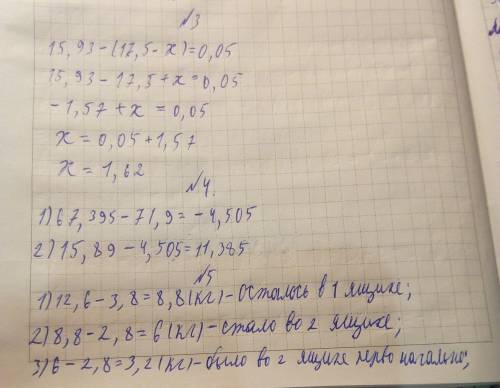 №3
15,93-(17,5-x)=0,05
15,93-17,5+x=0,05
-1,57+x=0,05
x=0,05+1,57
x=1,62
№4.
1)67,395-71,9=-4,505
2)15,89-4,505=11,385
№5
1)12,6-3,8=8,8(кг)-осталось в 1 ящике;
2)8,8-2,8=6(кг)-стало во 2 ящике;
3)6-2,8=3,2(кг)-было во 2 ящике перво начально;